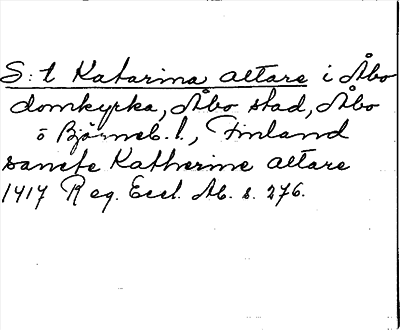 S:t Katarina altare i Åbo
domkyrka, Åbo stad, Åbo
o Björneb. l., Finland
sancte Katherine altare
1417 Reg. Eccl. Ab. s. 276.